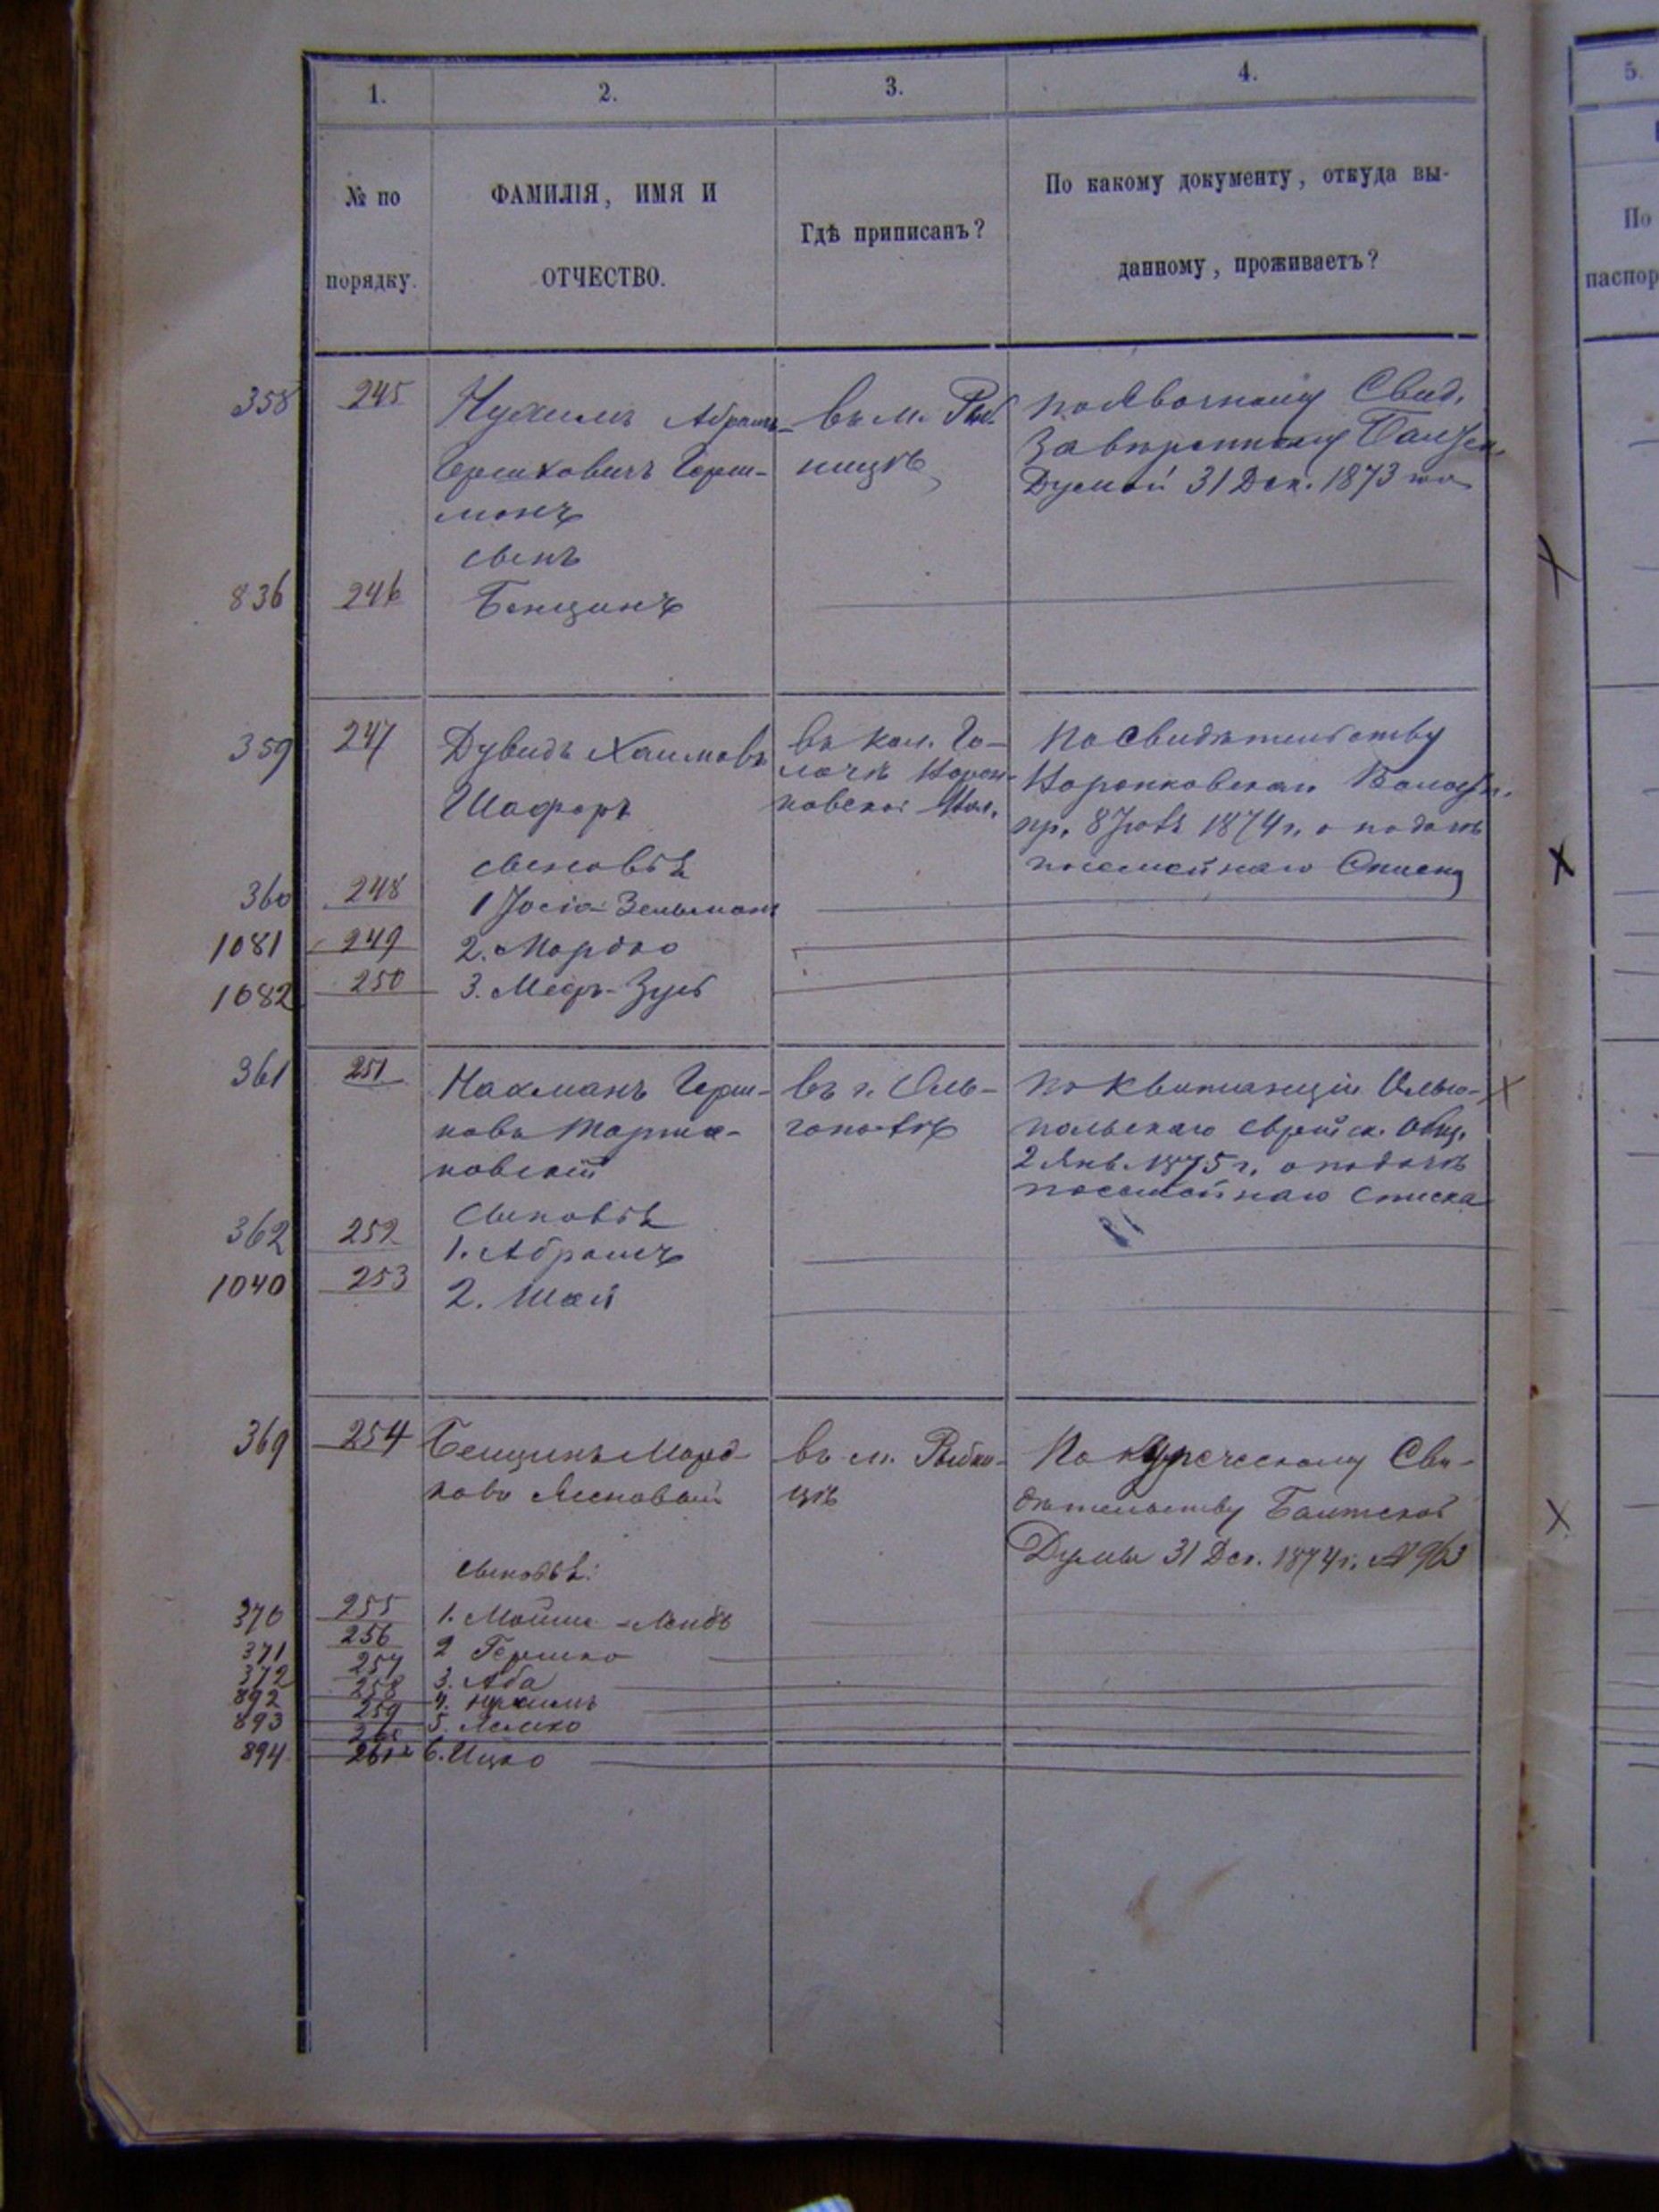 1. 2. 3. 4. 5.
№ по порядку.
ФАМИЛІЯ, ИМЯ И
ОТЧЕСТВО.
Гдѣ приписанъ?
По какому документу, откуда вы-
данному, проживаетъ?
По
паспор
358 245 Нухимъ Абрамъ- въ м. Рыб- по Явочному Свид.
Гершковичъ Герш- ницѣ
Думой 31 Дек. 1873 год
сынъ
836 246 Бенціонъ
359 247 Дувидъ Хаимовъ въ кол. Го- По Свидѣтельству
Шаферъ
пр. 8 1874 г. о подачѣ
сыновья посемейнаго Списка
360 248 1 Іосіо-Зельманъ
1081 249 2. Мордко
1082 250 3. Меэръ-Зусь
361 251 Нахманъ Герш- въ г. Оль- по Квитанціи Ольго-
ковъ гополѣ польскаго Еврейск. Общ.
новскій 2 Янв. 1875 г. о подачѣ
посемейнаго списка
сыновья
362 252 1. Абрамъ
1040 253 2. Шая
369 254 Бенціонъ Морд- въ м. Рыбни- По купеческому Сви-
ковъ цѣ дѣтельству Балтской
Думы 31 Дек. 1874 г. № 963
сыновья:
370 255 1. Мойше-Лейбъ
371 256 2 Гершко
372 257 3. Аба
892 258 4. Нухимъ
893 259 5.
260
894 261 6. Ицко